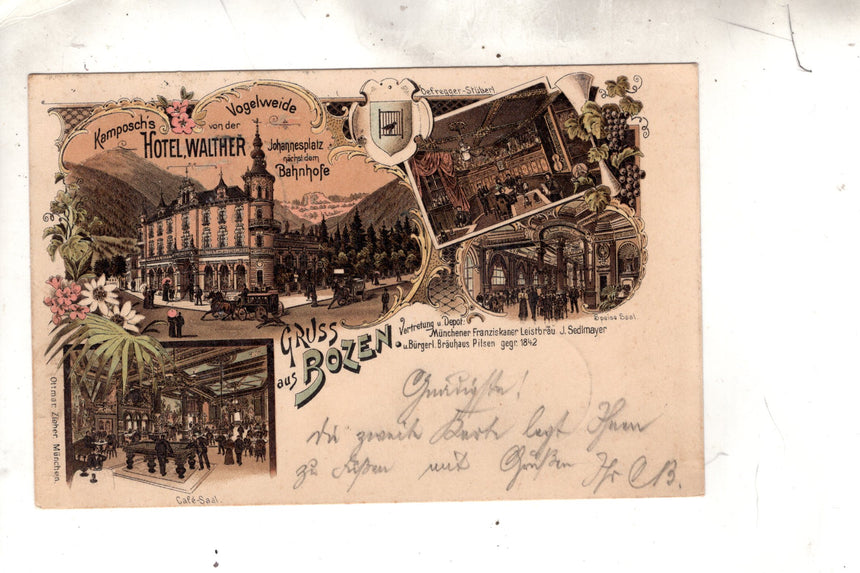 Kamposch's
HOTEL, WALTHER
von der
Vogelweide
Johannesplatz
nächst dem
Bahnhofe
Defregger-Stüberl
Speise Saal.
GRUSS
aus BOZEN.
Vertretung u. Depot:
Münchener Franziskaner Leistbräu J. Sedlmayer
u. Bürgerl. Bräuhaus Pilsen gegr. 1842
Café-Saal.
Ottmar Zieher, München.
Gnädigste!
Die zweite Karte legt Ihnen
zu Füßen mit Grüßen Ihr CB.